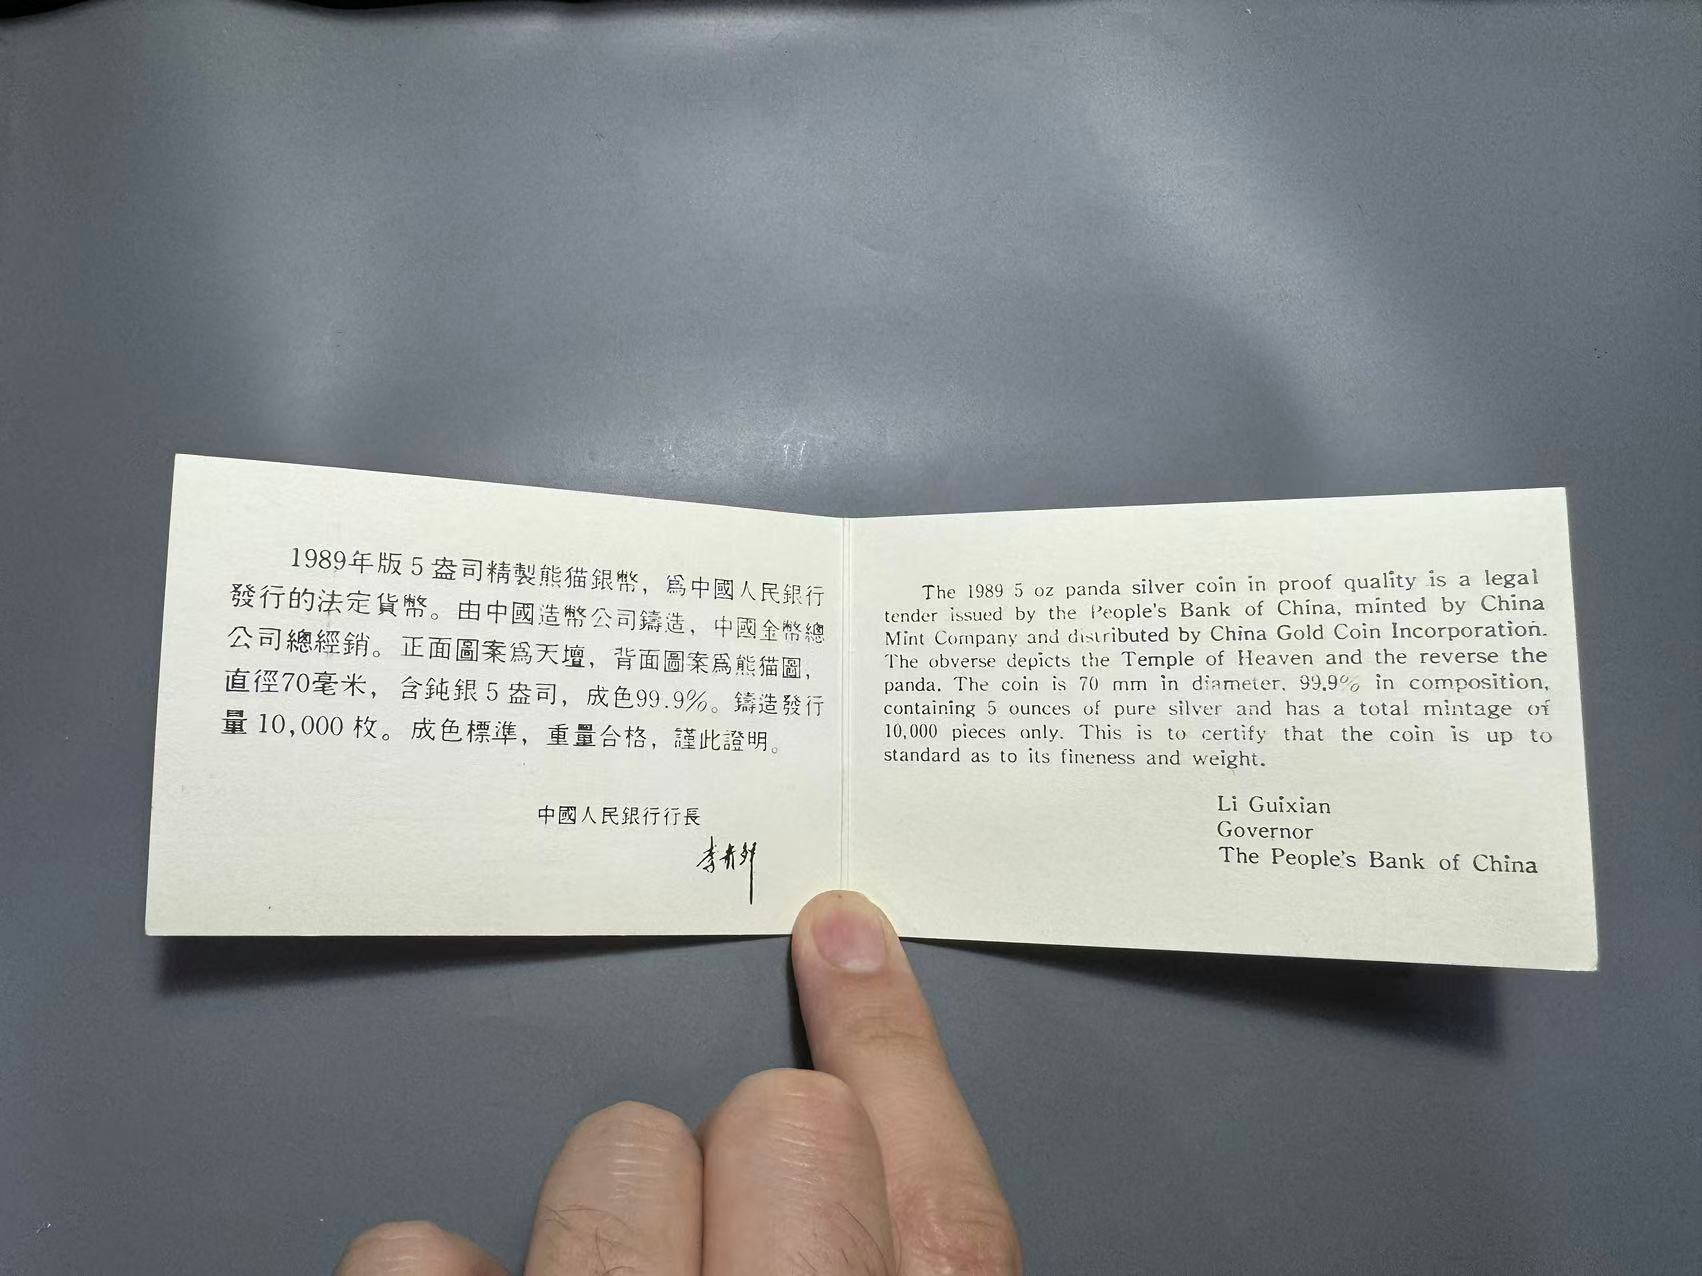 1989年版5盎司精製熊猫銀幣，爲中國人民銀行
發行的法定貨幣。由中國造幣公司鑄造，中國金幣總
公司總經銷。正面圖案爲天壇，背面圖案爲熊猫圖，
直徑70毫米，含純銀5盎司，成色99.9%。鑄造發行
量10,000枚。成色標準，重量合格，謹此證明。
中國人民銀行行長
李貴鮮
The 1989 5 oz panda silver coin in proof quality is a legal
tender issued by the People's Bank of China, minted by China
Mint Company and distributed by China Gold Coin Incorporation.
The obverse depicts the Temple of Heaven and the reverse the
panda. The coin is 70 mm in diameter, 99.9% in composition,
containing 5 ounces of pure silver and has a total mintage of
10,000 pieces only. This is to certify that the coin is up to
standard as to its fineness and weight.
Li Guixian
Governor
The People's Bank of China